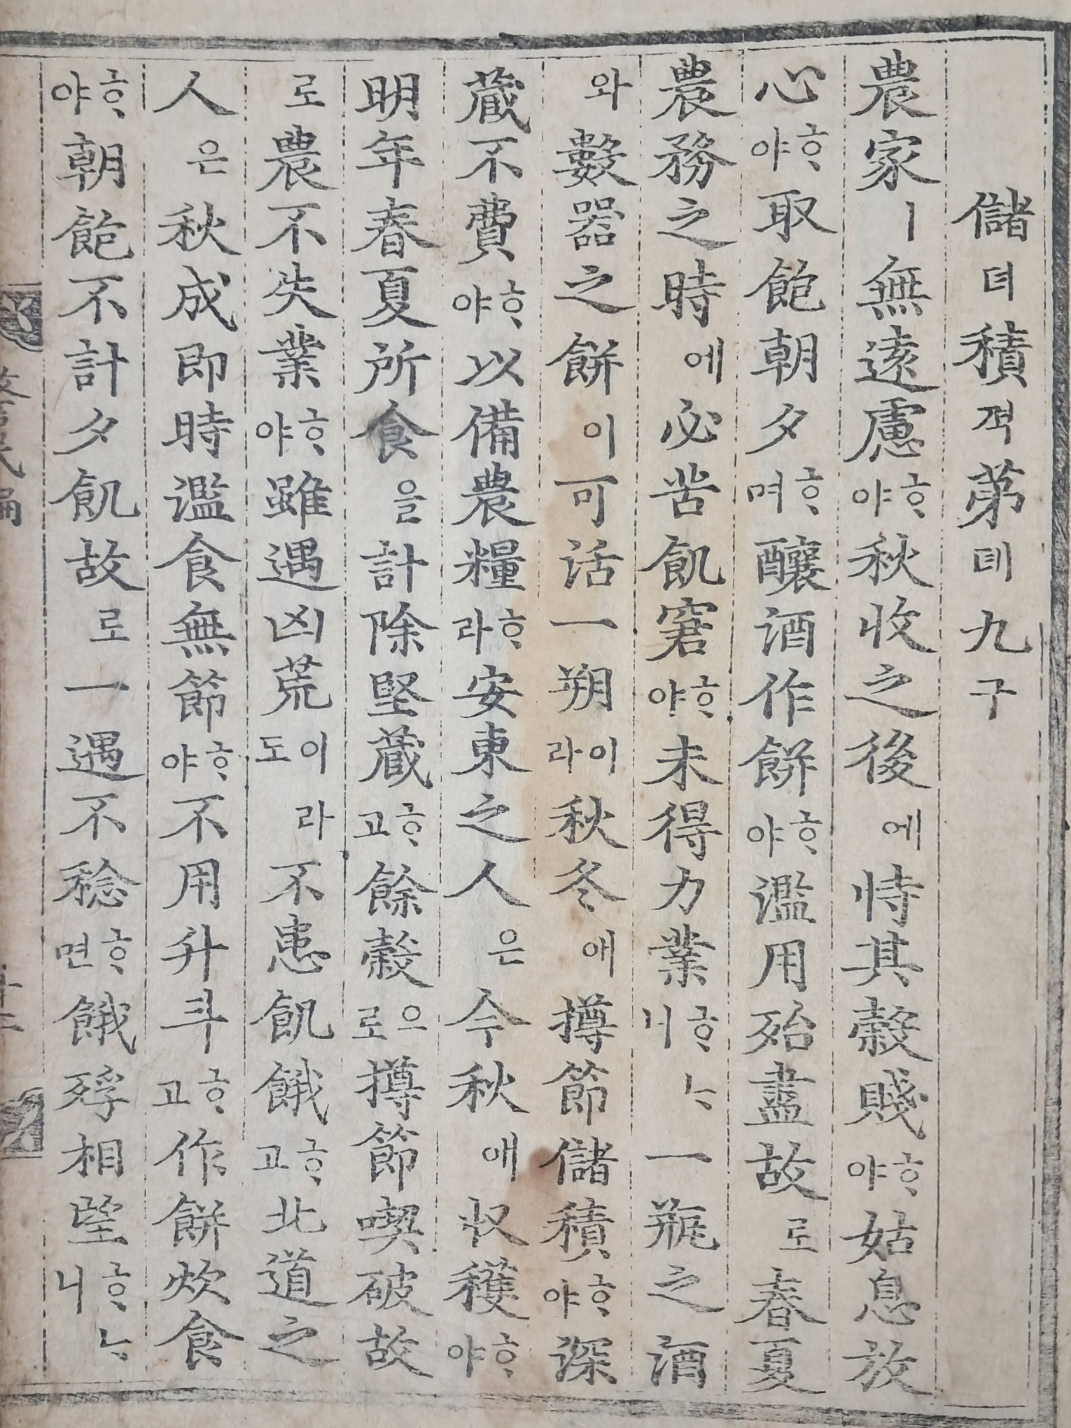 儲뎌積젹第뎨九구
農家ㅣ無遠慮ᄒᆞ야秋收之後에恃其穀賤ᄒᆞ야姑息放
心ᄒᆞ야取飽朝夕ᄒᆞ며釀酒作餠ᄒᆞ야濫用殆盡故로春夏
農務之時에必苦飢窘ᄒᆞ야未得力業ᄒᆞᄂᆞ니一瓶之酒
와數器之餠이可活一朔이라秋冬애撙節儲積ᄒᆞ야深
藏不費ᄒᆞ야以備農糧ᄒᆞ라安東之人은今秋애收穫ᄒᆞ야
明年春夏所食을計除堅藏ᄒᆞ고餘穀으로撙節喫破故
로農不失業ᄒᆞ야雖遇凶荒이라도不患飢餓ᄒᆞ고北道之
人은秋成即時濫食無節ᄒᆞ야不用升斗ᄒᆞ고作餠炊食
ᄒᆞ야朝飽不計夕飢故로一遇不稔ᄒᆞ면餓殍相望ᄒᆞᄂᆞ니